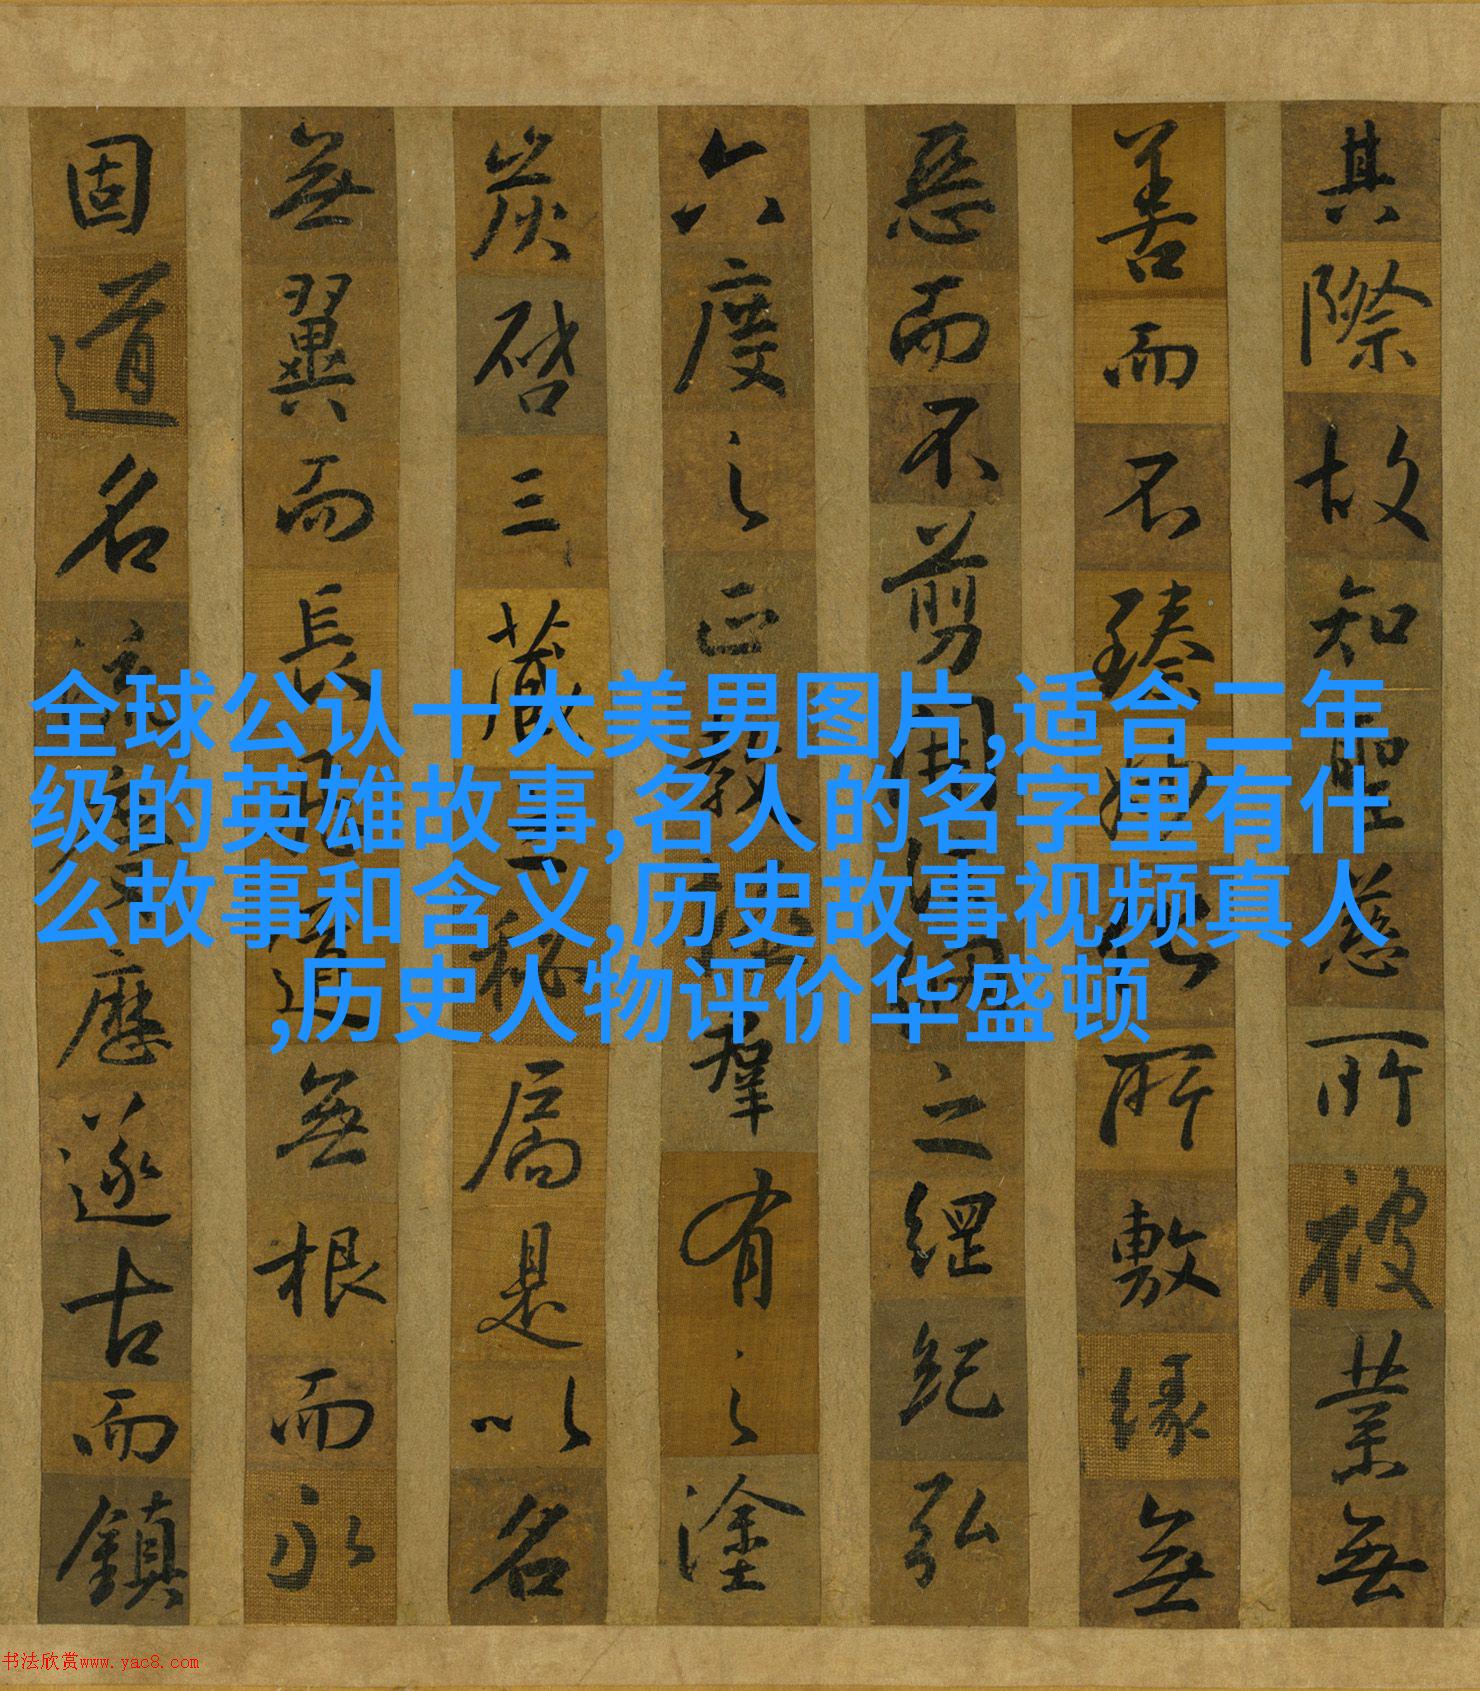 其際故知聖慈所被業無
善而不臻妙化所敷緣無
惡而不剪開法網之綱紀弘
六度之正教拯羣有之塗
炭啓三藏之秘扃是以名
無翼而長飛道無根而永
固道名流慶歷遂古而鎮
全球公认十大美男图片,适合二年
级的英雄故事,名人的名字里有什
么故事和含义,历史故事视频真人
,历史人物评价华盛顿
书法欣赏www.yac8.com